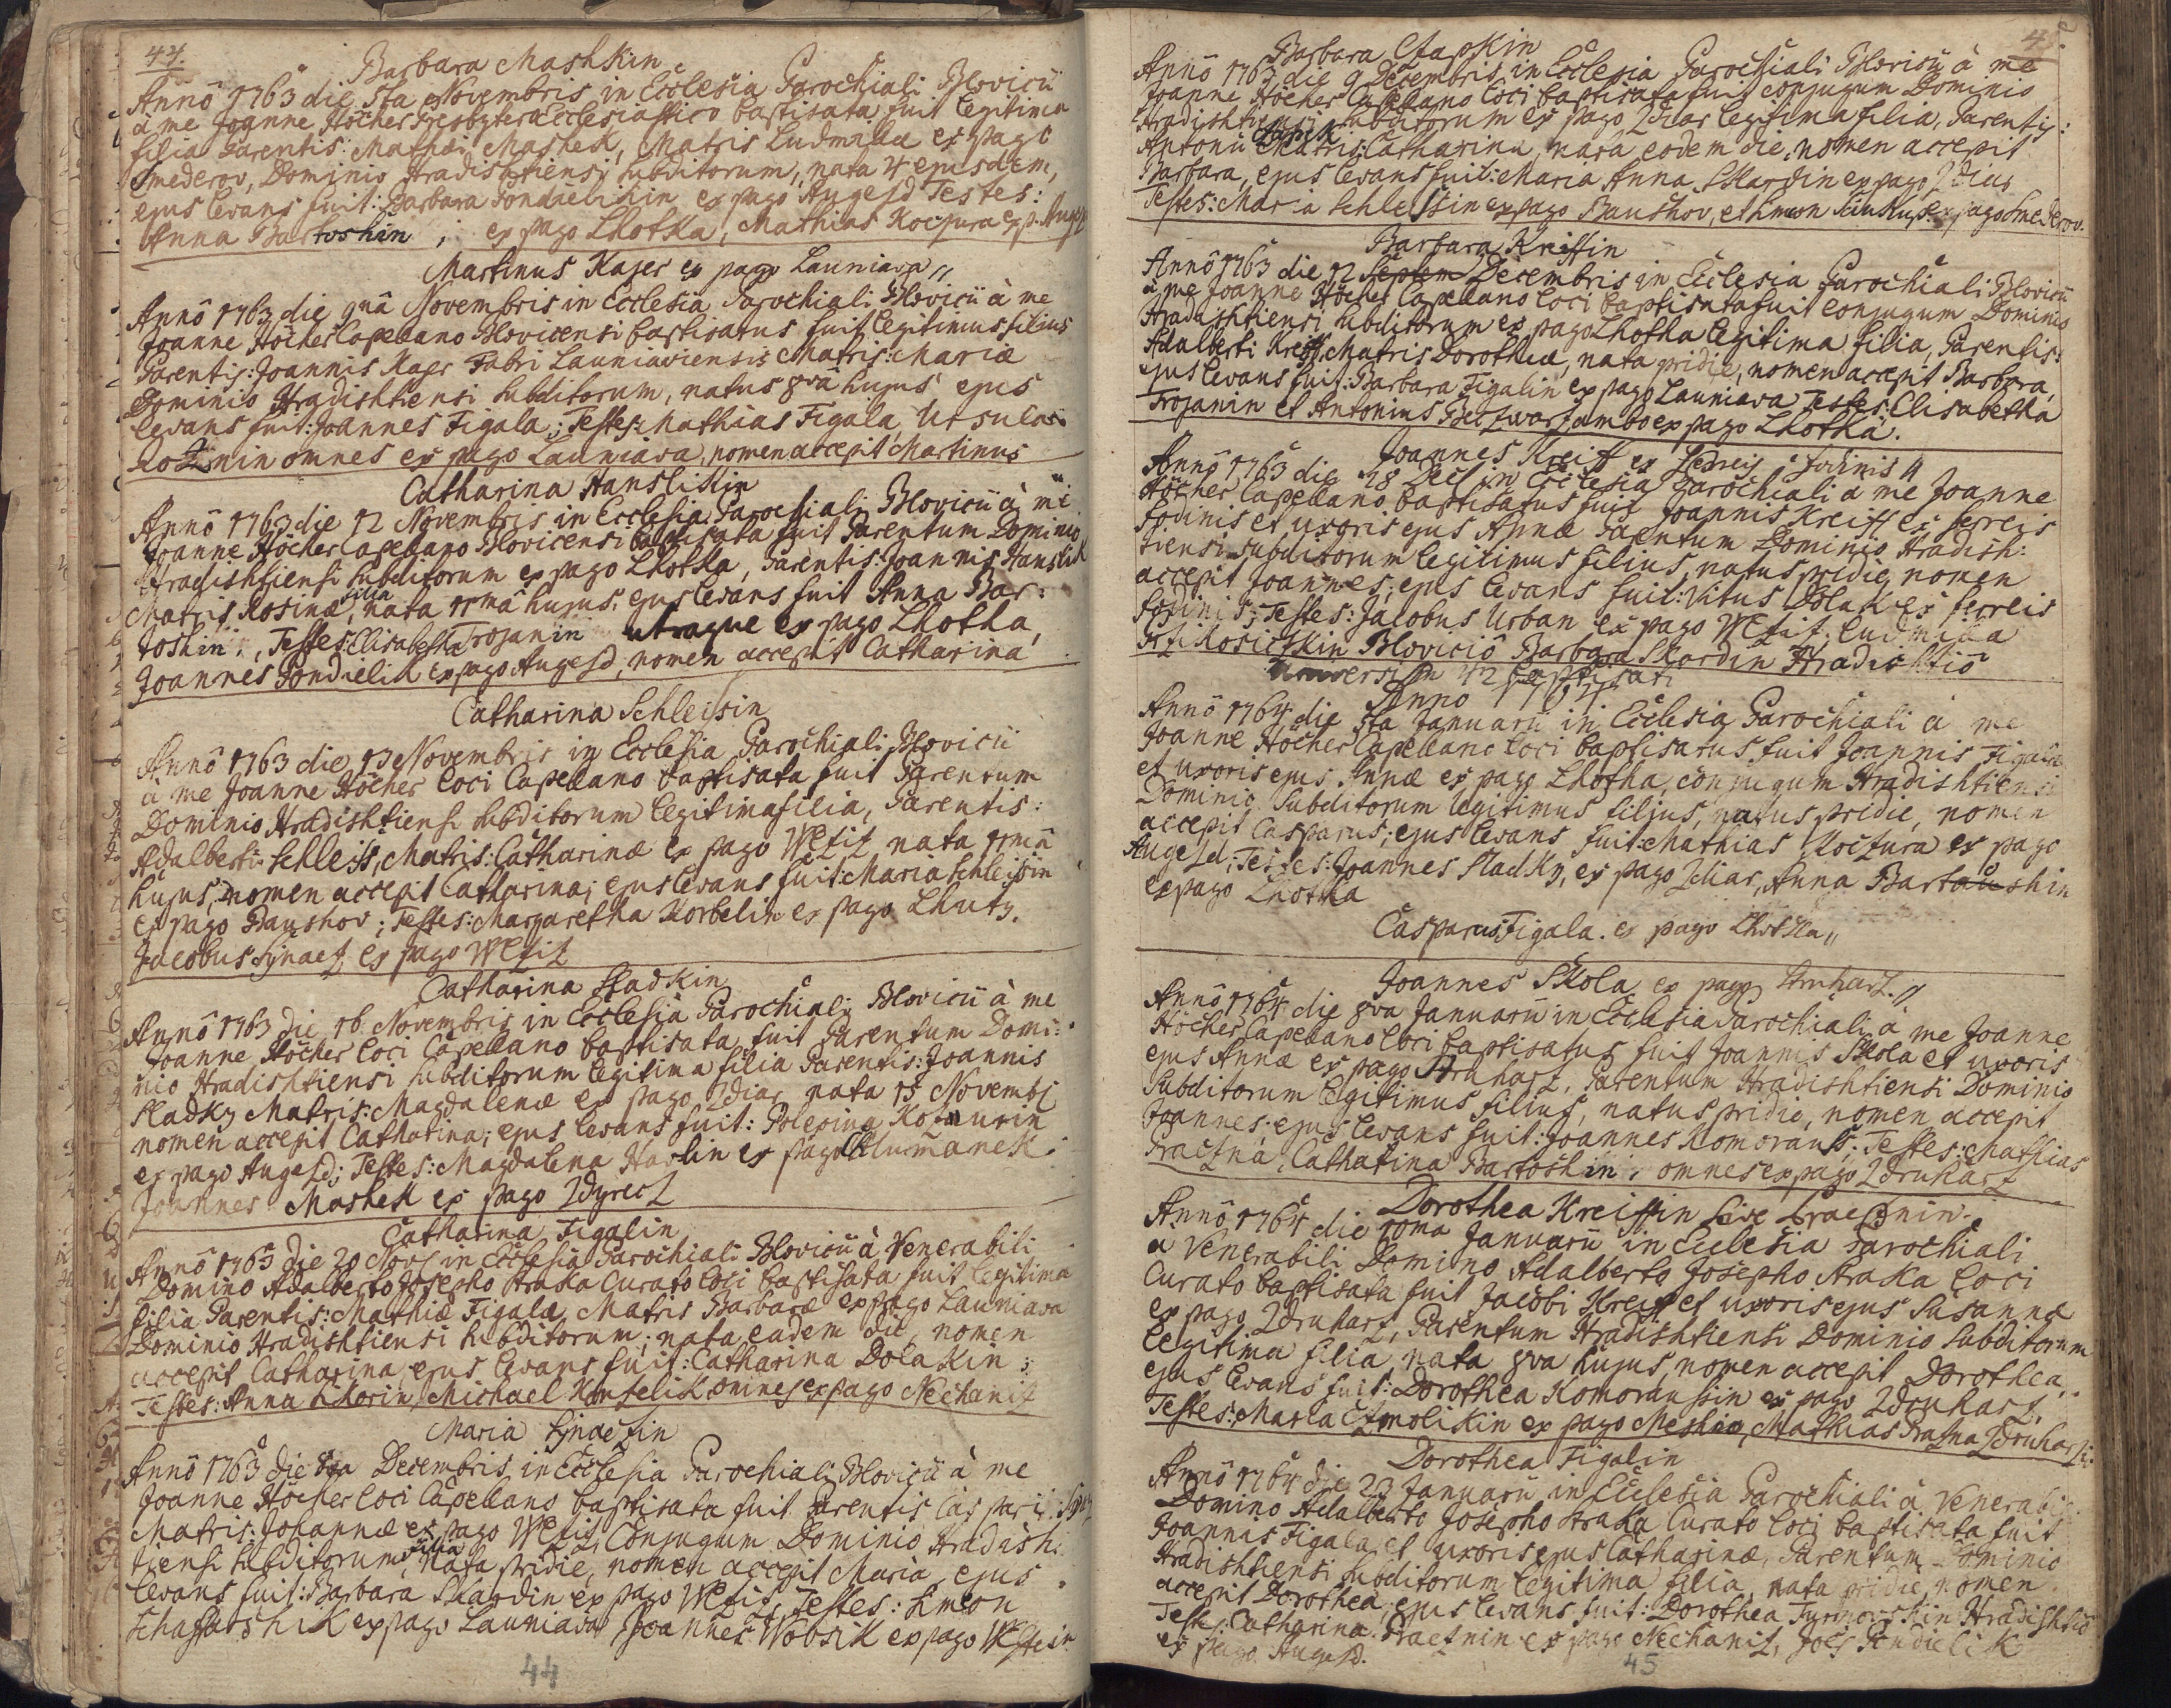 44.
Barbara Mashkin
Anno 1763 die 5ta Novembris in Ecclesia Parochiali Blovicii
à me Joanne Höcher Presbytero Ecclesiastico baptisata fuit legitima
filia Parentis: Mathæi Mashek, Matris Ludmilla ex pago
Smederov, Dominio Hradishtiensi subditorum, nata 4 ejusdem,
ejus levans fuit: Barbara Pondielikin ex pago Augezd Testes:
Anna Bartoshin, ex pago Lhotka, Mathias Koczura ex p. Augezd
Martinus Kajer ex pago Launiava
Anno 1763 die 9nâ Novembris in Ecclesia Parochiali Blovicii à me
Joanne Höcher Capellano Blovicensi baptisatus fuit legitimus filius
Parentis: Joannis Kajer Fabri Launiaviensis Matris: Mariæ
Dominio Hradishtiensi subditorum, natus 8vâ hujus ejus
levans fuit: Joannes Figala; Testes: Mathias Figala, Ursula
omnes ex pago Launiava, nomen accepit Martinus
Catharina Hanslikin
Anno 1763 die 12 Novembris in Ecclesia Parochiali Blovicii à me
Joanne Höcher Capellano Blovicensi baptisata fuit Parentum Dominio
Hradishtiensi subditorum ex pago Lhotka, Parentis: Joannis Hanslik
Matris Rosinæ filia, nata 11mâ hujus, ejus levans fuit Anna Bar:
toshin, Testes: Elisabetha Trojanin utraque ex pago Lhotka,
Joannes Pondielik ex pago Augezd, nomen accepit Catharina
Catharina Schleissin
Anno 1763 die 13 Novembris in Ecclesia Parochiali Blovicii
à me Joanne Höcher loci Capellano baptisata fuit Parentum
Dominio Hradishtiensi subditorum legitima filia, Parentis:
Adalberti Schleiss, Matris: Catharinæ ex pago Wlziz nata 11mâ
hujus, nomen accepit Catharina; ejus levans fuit: Maria Schleissin
ex pago Baushov; Testes: Margaretha Korbelin ex pago Lhuty,
Jacobus Synacz ex pago Wlziz
Catharina Sladkin
Anno 1763 die 16. Novembris in Ecclesia Parochiali Blovicii à me
Joanne Höcher loci Capellano baptisata fuit Parentum Domi:
nio Hradishtiensi subditorum legitima filia Parentis: Joannis
Sladky Matris: Magdalenæ ex pago Zdiar nata 15 Novembr
nomen accepit Catharina; ejus levans fuit: Polexina Koczurin
ex pago Augezd; Testes: Magdalena Havlin ex pago Chlumanek
Joannes Mashek ex pago Zdyrecz
Catharina Figalin
Anno 1763 die 20 Nov in Ecclesia Parochiali Blovicii à Venerabili
Domino Adalberto Josepho Straka Curato loci baptisata fuit legitima
filia Parentis: Mathiæ Figala, Matris Barbaræ ex pago Launiava
Dominio Hradishtiensi subditorum, nata eadem die, nomen
accepit Catharina, ejus levans fuit: Catharina Dolakin;
Testes: Anna Sikorin, Michael omnes ex pago Nechaniz
Maria Synaczin
Anno 1763 die Decembris in Ecclesia Parochiali Blovicii à me
Joanne Höcher loci Capellano baptisata fuit Parentis Caspari:
Matris: Johannæ ex pago Wlziz, Conjugum Dominio Hradish:
tiensi subditorum filia, nata pridie, nomen accepit Maria, ejus
levans fuit: Barbara Skardin ex pago Wlziz, Testes: Simeon
ex pago Launiava Joannes Wobsik ex pago
44
45.
Barbara Czapkin
Anno 1763 die 9 Decembris in Ecclesia Parochiali Blovicii à me
Joanne Höcher Capellano loci baptisata fuit conjugum Dominio
Hradishtiensi subditorum ex pago Zdiar legitima filia, Parentis:
Antonii Czapek Matris: Catharina, nata eodem die, nomen accepit
Barbara, ejus levans fuit: Maria Anna Skardin ex pago Zdiar
Testes: Maria Schleissin ex pago Baushov, et Simeon ex pago Smederov.
Barbara Kreissin
Anno 1763 die 12 Septem Decembris in Ecclesia Parochiali Blovicii
à me Joanne Höcher Capellano loci baptisata fuit Conjugum Dominio
Hradishtiensi subditorum ex pago Lhotka legitima filia, Parentis:
Adalberti Kreiss, Matris Dorotheæ, nata pridie, nomen accepit Barbara,
ejus levans fuit: Barbara Figalin ex pago Launiava Testes: Elisabetha
Trojanin et Antonius ambo ex pago Lhotka.
Joannes Kreiss ex ferreis fodinis
Anno 1763 die 18 Dec in Ecclesia Parochiali à me Joanne
Höcher Capellano baptisatus fuit Joannis Kreiss ex ferreis
fodinis et uxoris ejus Annæ Parentum Dominio Hradish:
tiensi subditorum legitimus filius, natus pridie, nomen
accepit Joannes, ejus levans fuit: Vitus Dolak ex ferreis
fodinis; Testes: Jacobus Urban ex pago Wlziz, Ludmilla
Blovicio Barbara Skardin Hradishtio
Universim 42 baptisati
Anno 1764
Anno 1764 die 5ta Januarii in Ecclesia Parochiali à me
Joanne Höcher Capellano loci baptisatus fuit Joannis Figala
et uxoris ejus Annæ ex pago Lhotka, conjugum Hradishtiensi
Dominio subditorum legitimus filius, natus pridie, nomen
accepit Casparus; ejus levans fuit: Mathias Koczura ex pago
Augezd; Testes: Joannes Sladky, ex pago Zdiar, Anna Bartoshin
ex pago Lhotka
Casparus Figala. ex pago Lhotka
Joannes Skola ex pago Struharz
Anno 1764 die 8va Januarii in Ecclesia Parochiali à me Joanne
Höcher Capellano loci baptisatus fuit Joannis Skola et uxoris
ejus Annæ ex pago Struharz, Parentum Hradishtiensi Dominio
Subditorum legitimus filius, natus pridie, nomen accepit
Joannes, ejus levans fuit: Joannes Komorauss; Testes: Mathias
Praczna, Catharina Bartoshin, omnes ex pago Zdruharz
Dorothea Kreissin sive
Anno 1764 die 10ma Januarii in Ecclesia Parochiali
à Venerabili Domino Adalberto Josepho Straka loci
Curato baptisata fuit Jacobi Kreiss et uxoris ejus Susannæ
ex pago Zdruharz, Parentum Hradishtiensi Dominio subditorum
legitima filia, nata 8va hujus, nomen accepit Dorothea,
ejus levans fuit: Dorothea Komoraussin ex pago Zdruharz,
Testes: Maria ex pago Meshin, Mathias Praczna Zdruharz:
Dorothea Figalin
Anno 1764 die 23 Januarii in Ecclesia Parochiali à Venerabili
Domino Adalberto Josepho Straka Curato loci baptisata fuit
Joannis Figala et uxoris ejus Catharinæ, Parentum Dominio
Hradishtiensi subditorum legitima filia, nata pridie, nomen
accepit Dorothea, ejus levans fuit: Dorothea Hradishtio
Test: Catharina Pracznin ex pago Nechaniz, Joēs Pondielik
ex pago Augezd.
45